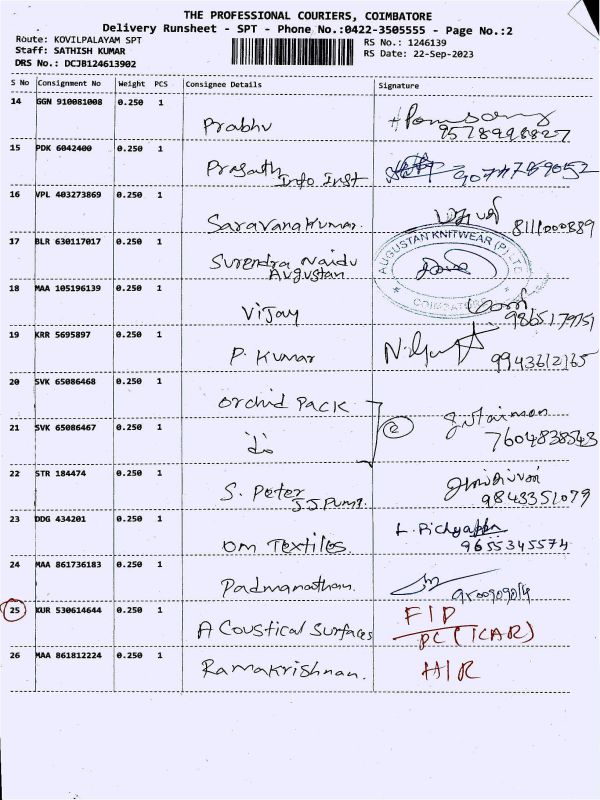 THE PROFESSIONAL COURIERS, COIMBATORE
Delivery Runsheet - SPT - Phone No.:0422-3505555 - Page No.:2
Route: KOVILPALAYAM SPT
Staff: SATHISH KUMAR
DRS No.: DCJB124613902
RS No.: 1246139
RS Date: 22-Sep-2023
S No Consignment No Weight PCS Consignee Details Signature
14 GGN 910081008 0.250 1
Prabhu
9578998827
15 PDK 6042400 0.250 1
Prasath Info Inst
9077759052
16 VPL 403273869 0.250 1
Saravanakumar
8111000889
17 BLR 630117017 0.250 1
Surendra Naidu
Augustan
AUGUSTAN KNITWEAR (P) LTD
COIMBATORE
18 MAA 105196139 0.250 1
Vijay
9865179151
19 KRR 5695897 0.250 1
P. Kumar
9943612165
20 SVK 65086468 0.250 1
Orchid Pack
21 SVK 65086467 0.250 1
do
2
7604838543
22 STR 184474 0.250 1
S. Peter
S.S.Pump.
9843351079
23 DDG 434201 0.250 1
Om Textiles.
L. Pichyappa
9655345574
24 MAA 861736183 0.250 1
Padmanathan
25 KUR 530614644 0.250 1
A Coustical Surfaces
FID
PC (ICAR)
26 MAA 861812224 0.250 1
Ramakrishnan.
H/R